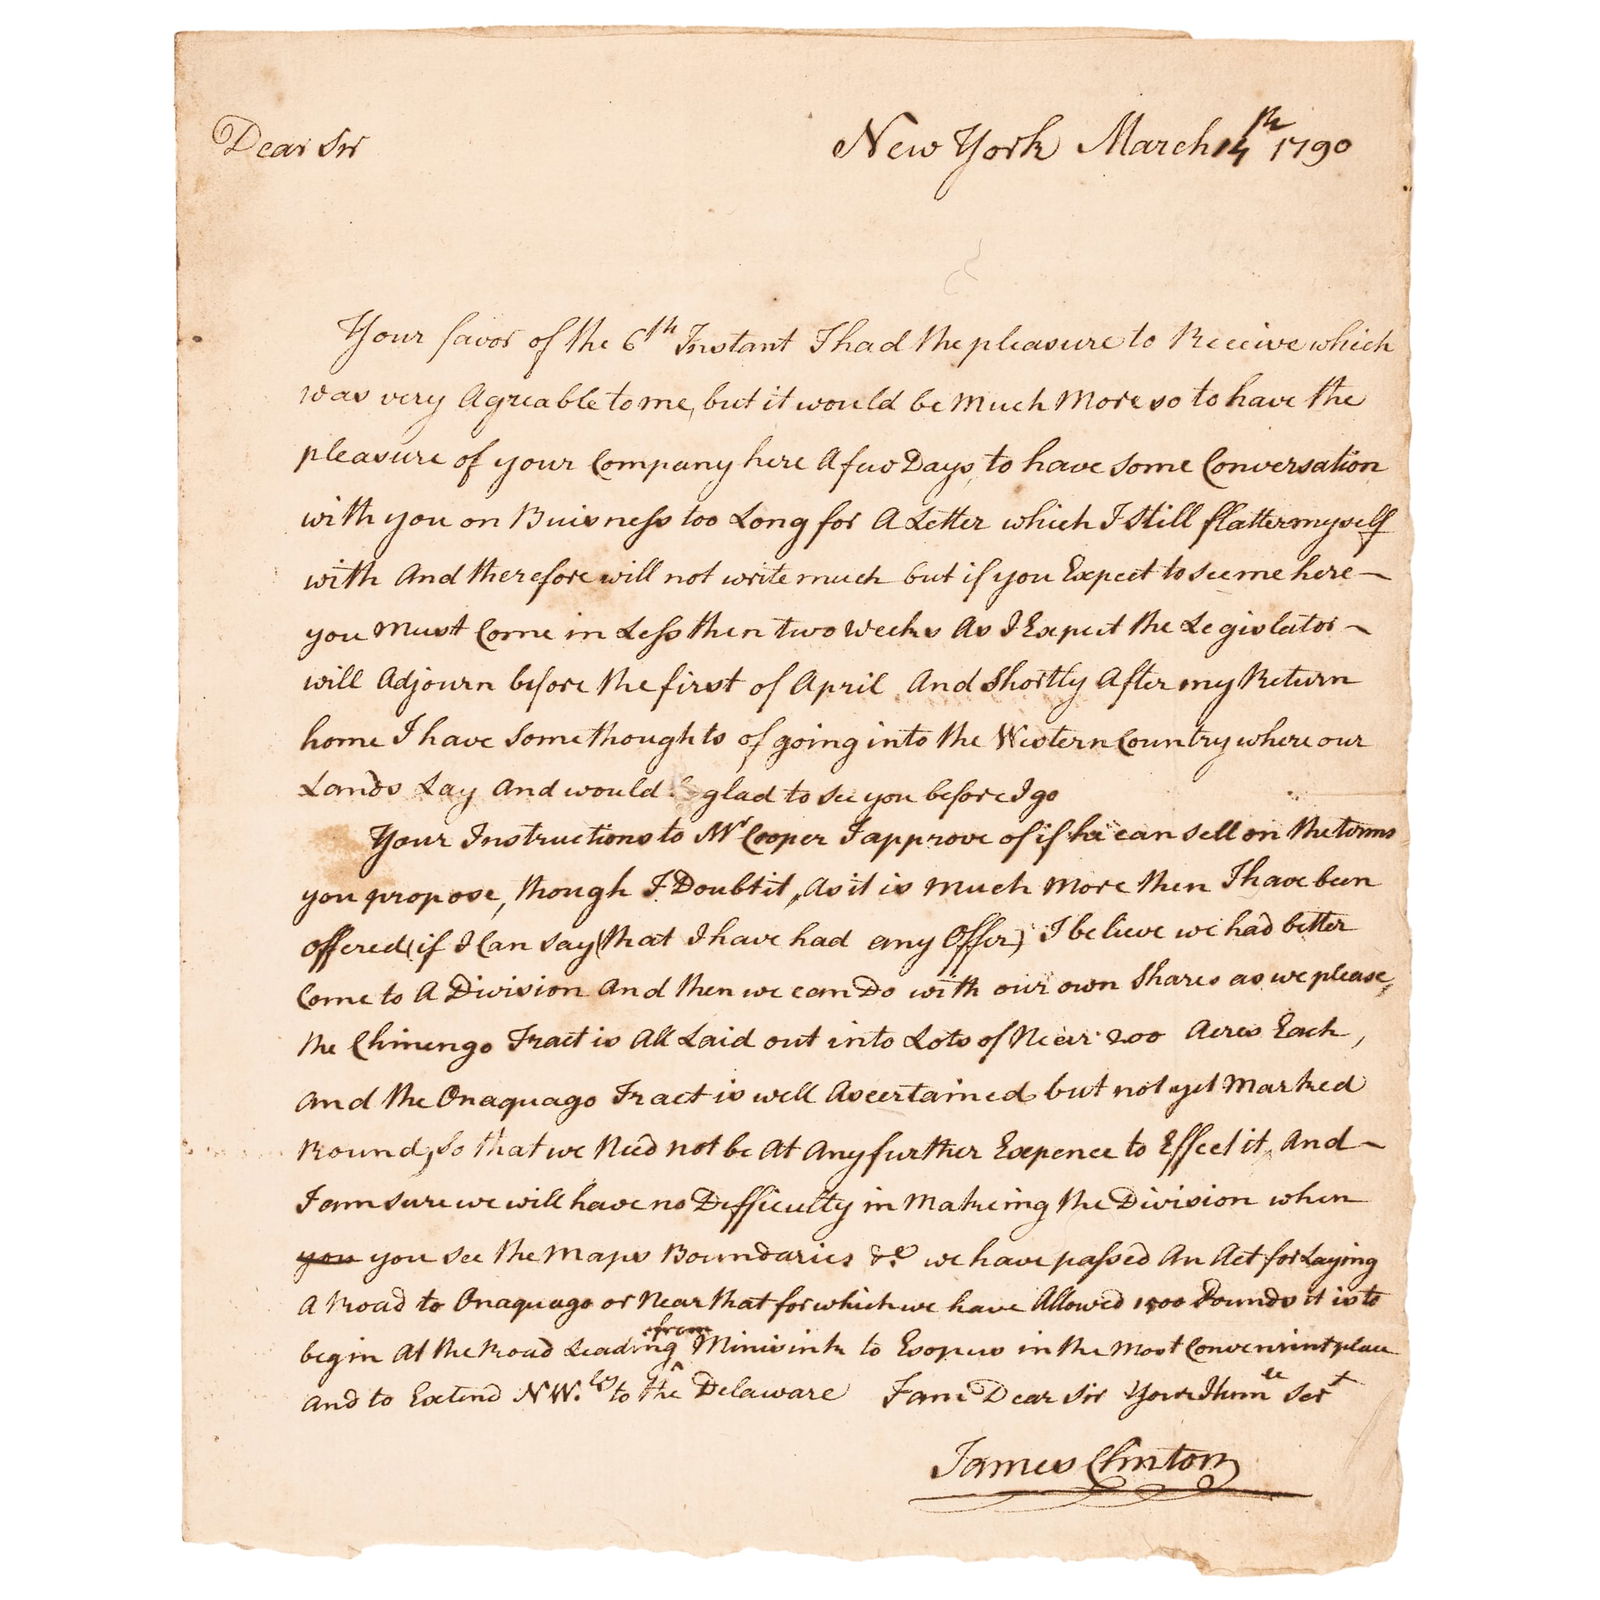 Dear Sir
New York March 14th 1790
Your favor of the 6th Instant I had the pleasure to Receive which
was very Agreable to me, but it would be Much More so to have the
pleasure of your Company here A few Days, to have some Conversation
with you on Buisness too Long for A Letter which I still flatter myself
with And therefore will not write much but if you Expect to see me here —
you Must Come in Less then two weeks As I Expect the Legislator —
will Adjourn before the first of April And Shortly After my Return
home I have some thoughts of going into the Western Country where our
Lands Lay And would be glad to see you before I go
Your Instructions to Mr Cooper I approve of if he can sell on the terms
you propose, though I Doubt it, As it is Much More then I have been
offered (if I Can say (that I have had any Offer) I believe we had better
Come to A Division And then we can Do with our own Shares as we please,
the Chinengo Tract is All Laid out into Lots of Near 200 Acres Each,
and the Onaquago Tract is well Ascertained but not yet Marked
Round, So that we Need not be At Any further Expence to Effect it, And —
I am sure we will have no Difficulty in Makeing the Division when
you you see the Maps Boundaries &c we have passed An Act for Laying
A Road to Onaquago or Near that for which we have Allowed 1500 Pounds it is to
begin At the Road Leading from Minisink to Esopus in the Most Convenient place
And to Extend NW.ly to the Delaware I am Dear Sir Your Humle Sert
James Clinton